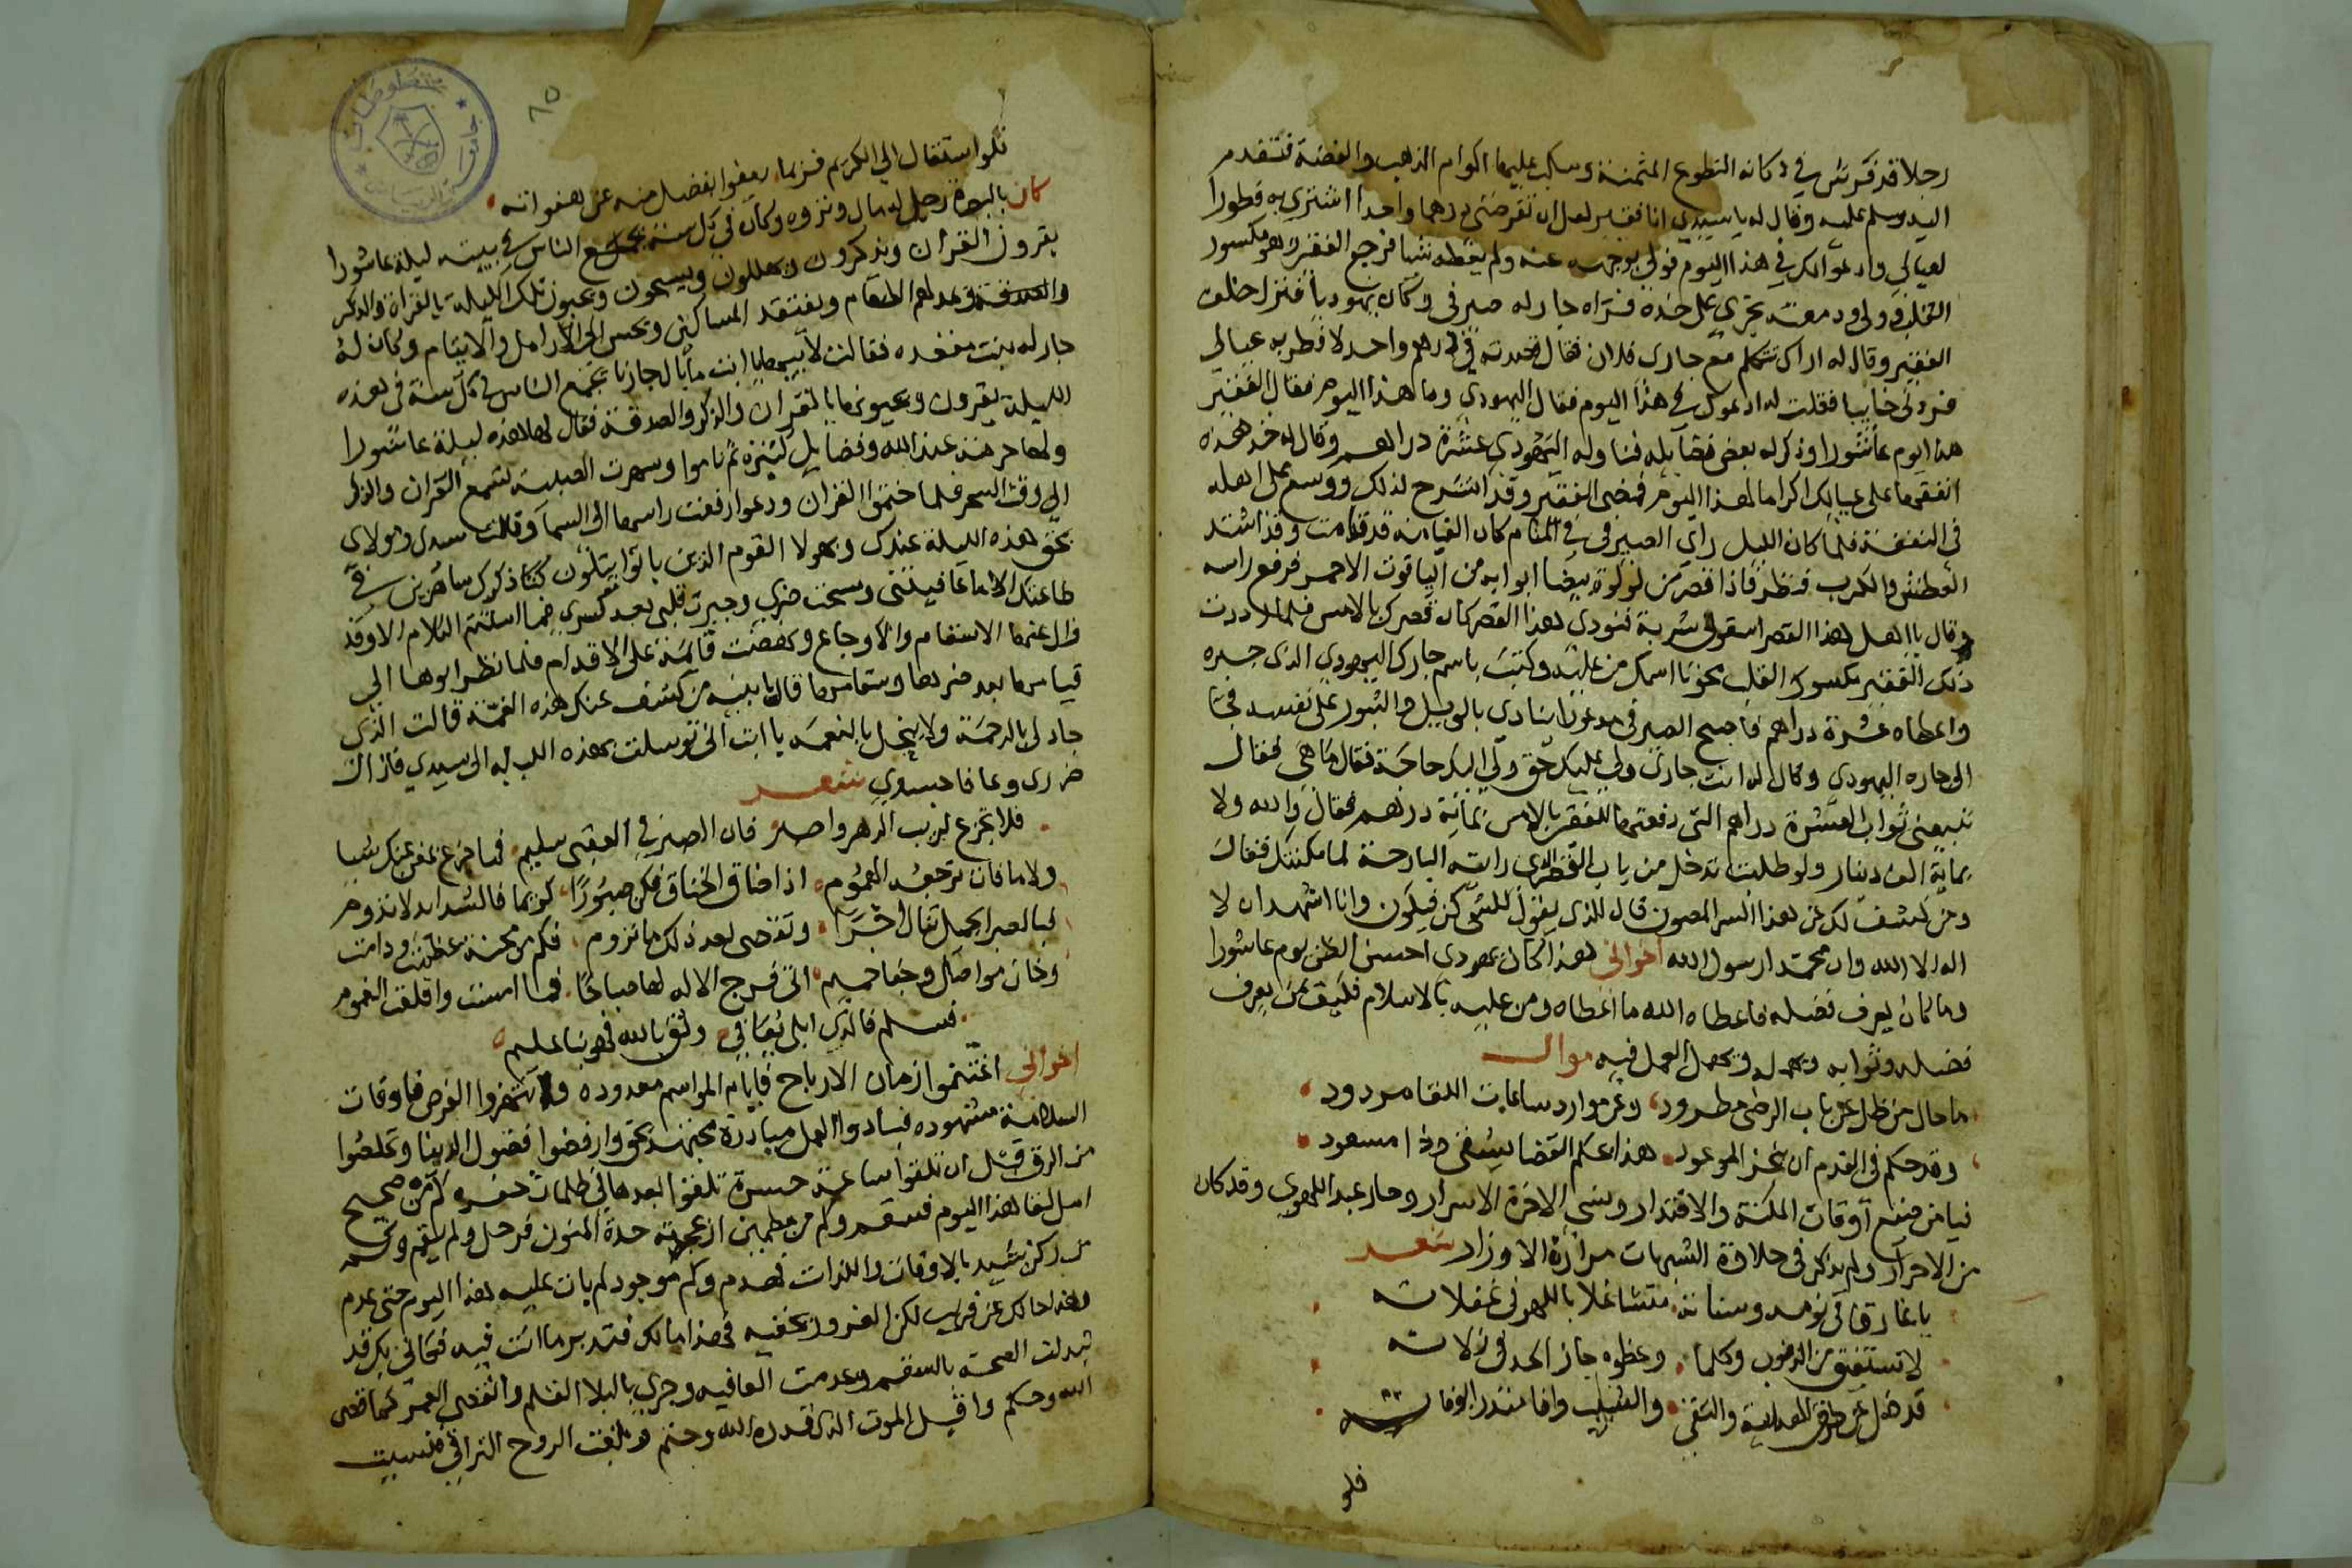 رجلا قد فرش في دكانه النطوع المثمنة وسكب عليها اكوام الذهب والفضة فتقدم
اليه وسلم عليه وقال له يا سيدي انا فقير لعل ان تقرضني درهما واحدا اشتري به فطورا
لعيالي وادعوا لك في هذا اليوم فولى بوجهه عنه ولم يعطه شيا فرجع الفقير وهو مكسور
القلب وولى ودمعته تجري على خده فراه جار له صيرفي وكان يهوديا فنزل خلف
الفقير وقال له اراك تتكلم مع جاري فلان فقال قصدته في درهم واحد لافطر به عيالي
فردني خايبا فقلت له ادعوا لك في هذا اليوم فقال اليهودي وما هذا اليوم فقال الفقير
هذا يوم عاشورا وذكر له بعض فضايله فناوله اليهودي عشرة دراهم وقال له خذ هذه
انفقها على عيالك اكراما لهذا اليوم فمضى الفقير وقد انشرح لذلك ووسع على اهله
في النفقة فلما كان الليل راى الصيرفي في المنام كان القيامة قد قامت وقد اشتد
العطش والكرب فنظر فاذا قصر من لولوة بيضا ابوابه من الياقوت الاحمر فرفع راسه
وقال يا اهل هذا القصر اسقوني شربة فنودي هذا القصر كان قصرك بالامس فلما رددت
ذلك الفقير مكسور القلب محونا اسمك من عليه وكتب باسم جارك اليهودي الذي جبره
واعطاه عشرة دراهم فاصبح الصيرفي مدعورا ينادي بالويل والثبور على نفسه فجا
الى جاره اليهودي وقال له انت جاري ولي عليك حق ولي اليك حاجة فقال ما هي فقال
تبيعني ثواب العشرة دراهم التي دفعتها للفقير بالامس بماية درهم فقال والله ولا
بماية الف دينار ولو طلبت تدخل من باب القصر الذي رايته البارحة لما مكنتك فقال
ومن كشف لك عن هذا السر المصون قال الذي يقول للشي كن فيكون وانا اشهد ان لا
اله الا الله وان محمدا رسول الله اخواني هذا كان يهودي احسن الظن بيوم عاشورا
وما كان يعرف فضله فاعطاه الله ما اعطاه ومن عليه بالاسلام فكيف بمن يعرف
فضله وثوابه ويهمل العمل فيه موال
ما حال من ظل عن باب الرضى مطرود وعن موارد ساعات اللقا مردود
وقد حكم في القدم ان ينجز الموعود هذا بحكم القضا يشقى وذا مسعود
فيا من ضيع اوقات المكنة والاقتدار ونسي الاخرة الاسرار وصار عبد الهوى وقد كان
من الاحرار ولم يذكر في حلاوة الشهوات مرارة الاوزار شعر
يا غارقا في نومه وسناته متشاغلا باللهو في غفلاته
لا تستفيق من الذنوب وكلما وعظوه جاز الحد في زلاته
قد ضل عن طرق الهداية والتقى والشيب وافا منذر الوفاته
فلو
٨٥
فلو استقال الى الكريم فربما يعفوا بفضل منه عن هفواته
كان بالبصرة رجل له مال وثروه وكان في كل سنة يجمع الناس في بيته ليلة عاشورا
يقرون القران ويذكرون ويهللون ويسبحون ويحيون تلك الليلة بالقراة والذكر
والصدقة ويمد لهم الطعام ويفتقد المساكين ويحسن الى الارامل والايتام وكان له
جار له بنت مقعده فقالت لابيها يا ابت ما بال جارنا يجمع الناس في كل سنة في هذه
الليلة يقرون ويحيونها بالقران والذكر والصدقة فقال لها هذه ليلة عاشورا
ولها حرمة عند الله وفضايل كثيرة ثم ناموا وسهرت الصبية تسمع القران والذكر
الى وقت السحر فلما ختموا القران ودعوا رفعت راسها الى السما وقالت سيدي ومولاي
بحق هذه الليلة عندك وبهولا القوم الذين باتوا يتلون كتابك ذكرك ساهرين في
طاعتك الا ما عافيتني وكشفت ضري وجبرت قلبي بعد كسري فما استتم الكلام الا وقد
زال عنها الاسقام والاوجاع ونهضت قايمة على الاقدام فلما نظر ابوها الى
قيامها بعد ضرها وسقامها قال يا بنية من كشف عنك هذه الغمة قالت الذي
جاد لي بالرحمة ولا يبخل بالنعمة يا ابت اني توسلت بهذه الليله الى سيدي فازال
ضرري وعافا جسدي شعر
فلا تجزع لريب الدهر واصبر فان الصبر في العقبى سليم فما جزع بمغن عنك شيا
ولا ما فات ترجعه الهموم اذا ضاق الخناق فكن صبورا كريما فالشدايد لا تدوم
فبالصبر الجميل تنال اجرا وتقضى بعد ذلك ما تروم فكم من محنة عظمت ودامت
وخان مواصل وجفا حميم اتى فرج الاله لها صباحا فما امست واقلعت الغموم
فسلم فالذي ابلى يعافي وثق بالله فهو بنا عليم
اخواني اغتنموا زمان الارباح فايام المواسم معدوده وانتهزوا الفرص فاوقات
السلامة مشهوده فبادروا العمل مبادرة مجتهد محق وارفضوا فضول الدنيا وتخلصوا
من الرق قبل ان تلقوا ساعة حسرة تلقوا بعدها في ظلمات حفره كم من صحيح
امل لقا هذا اليوم فسقم وكم من مطمين ازعجته حدة المنون فرحل ولم يقم وكم
من ركن شيد بالاوقات واللذات فهدم وكم موجود لم بات عليه هذا اليوم حتى عدم
وهذا حالك عن قريب لكن الغرور يخفيه فتدبر ما انت فيه فكاني بك قد
تبدلت الصحة بالسقم وعدمت العافيه وجرى بالبلا القلم وانقضى العمر كما قضى
الله وحكم واقبل الموت الذي قدره الله وحتم وبلغت الروح التراقي ونسيت